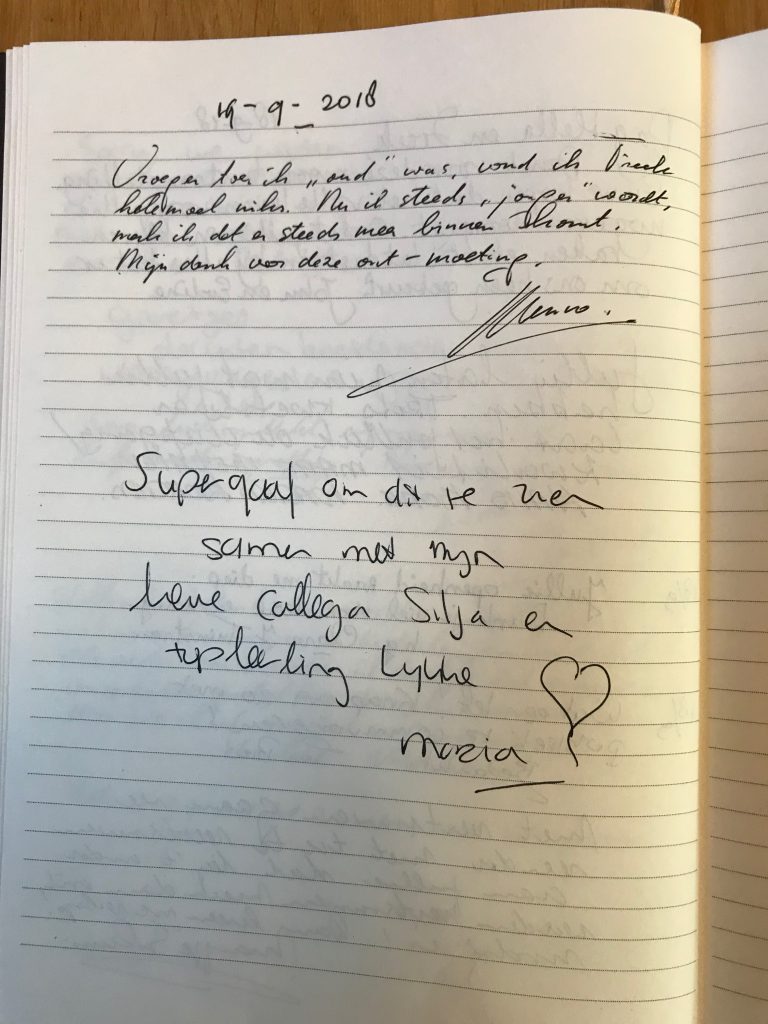 19-9-2018
Vroeger toen ik „oud" was, vond ik Freek
helemaal niks. Nu ik steeds „jonger" wordt,
merk ik dat er steeds meer binnen komt.
Mijn dank voor deze ont-moeting.
Supergaaf om dit te zien
samen met mijn
lieve collega Silja en
topleerling Lykke